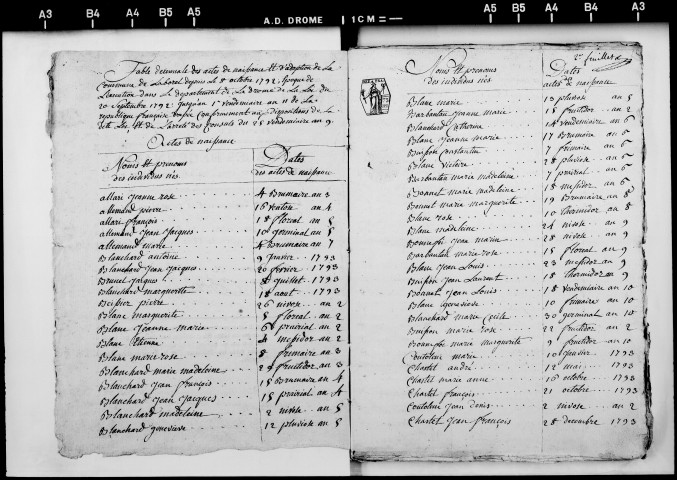 A3 B4 A4 B5 A5 A.D. DROME 1CM A5 B5 A4 B4 A3
Table decennale des actes de naissance et d'adoption de la
Commune de Laborel depuis le 8 octobre 1792 Epoque de
L'execution dans le departement de la drome de la loi du
20 septembre 1792 jusqu'au 1er vendemiaire an 11 de la
republique française conformement aux dispositions de la
dite loi et de l'arreté des consuls du 25 vendemiaire an 9.
Actes de naissance
Noms et prenoms des individus nés
Dates des actes de naissance
allari jeanne rose 4 Brumaire an 3
allemand pierre 16 ventose an 4
allari françois 18 floreal an 5
allemand jean jacques 10 germinal an 5
allemand marie 4 Brumaire an 7
Blanchard antoine 9 janvier 1793
Blanchard jean jacques 20 fevrier 1793
Brunel jacques 8 juillet 1793
Blanchard marguerite 18 aout 1793
pierre 26 nivose an 2
Blanc marguerite 5 floreal an 2
Blanc jeanne marie 6 prairial an 2
Blanc Etienne 4 messidor an 2
Blanc marie rose 8 frimaire an 3
Blanchard marie madeleine 29 fructidor an 3
Blanchard jean françois 15 Brumaire an 4
Blanchard jean jacques 15 prairial an 4
Blanchard madeleine 2 nivose an 5
Blanchard genevieve 12 pluviose an 5
2e feuillet
Noms et prenoms des individus nés
Dates actes de naissance
Blanc marie 10 pluviose an 5
Barbantan jeanne marie 15 fructidor an 5
Blanchard Catherine 14 vendemiaire an 6
Blanc jeanne marie 17 brumaire an 6
Buisson constantin 7 frimaire an 6
Blanc victoire 28 pluviose an 6
Barbantan marie madeleine 7 prairial an 6
Bonnet marie madeleine 18 messidor an 6
Bonnet marie marguerite 19 Brumaire an 8
Blanc rose 10 thermidor an 8
Blanc madeleine 24 nivose an 9
jean marie 28 nivose an 9
Barbantan marie rose 15 floreal an 9
Blanc jean Louis 23 messidor an 9
Buisson jean Laurent 18 thermidor an 9
Bonnet jean Louis 18 vendemiaire an 10
Blanc genevieve 10 frimaire an 10
Blanchard marie Cecile 30 germinal an 10
Buisson marie rose 22 fructidor an 2
marie marguerite 9 frimaire an 10
Coutolene marie 10 janvier 1793
Chastel andré 12 mai 1793
Chastel marie anne 16 octobre 1793
Chastel françois 21 octobre 1793
Coutolene jean denis 2 nivose an 2
Chastel jean françois 28 decembre 1793